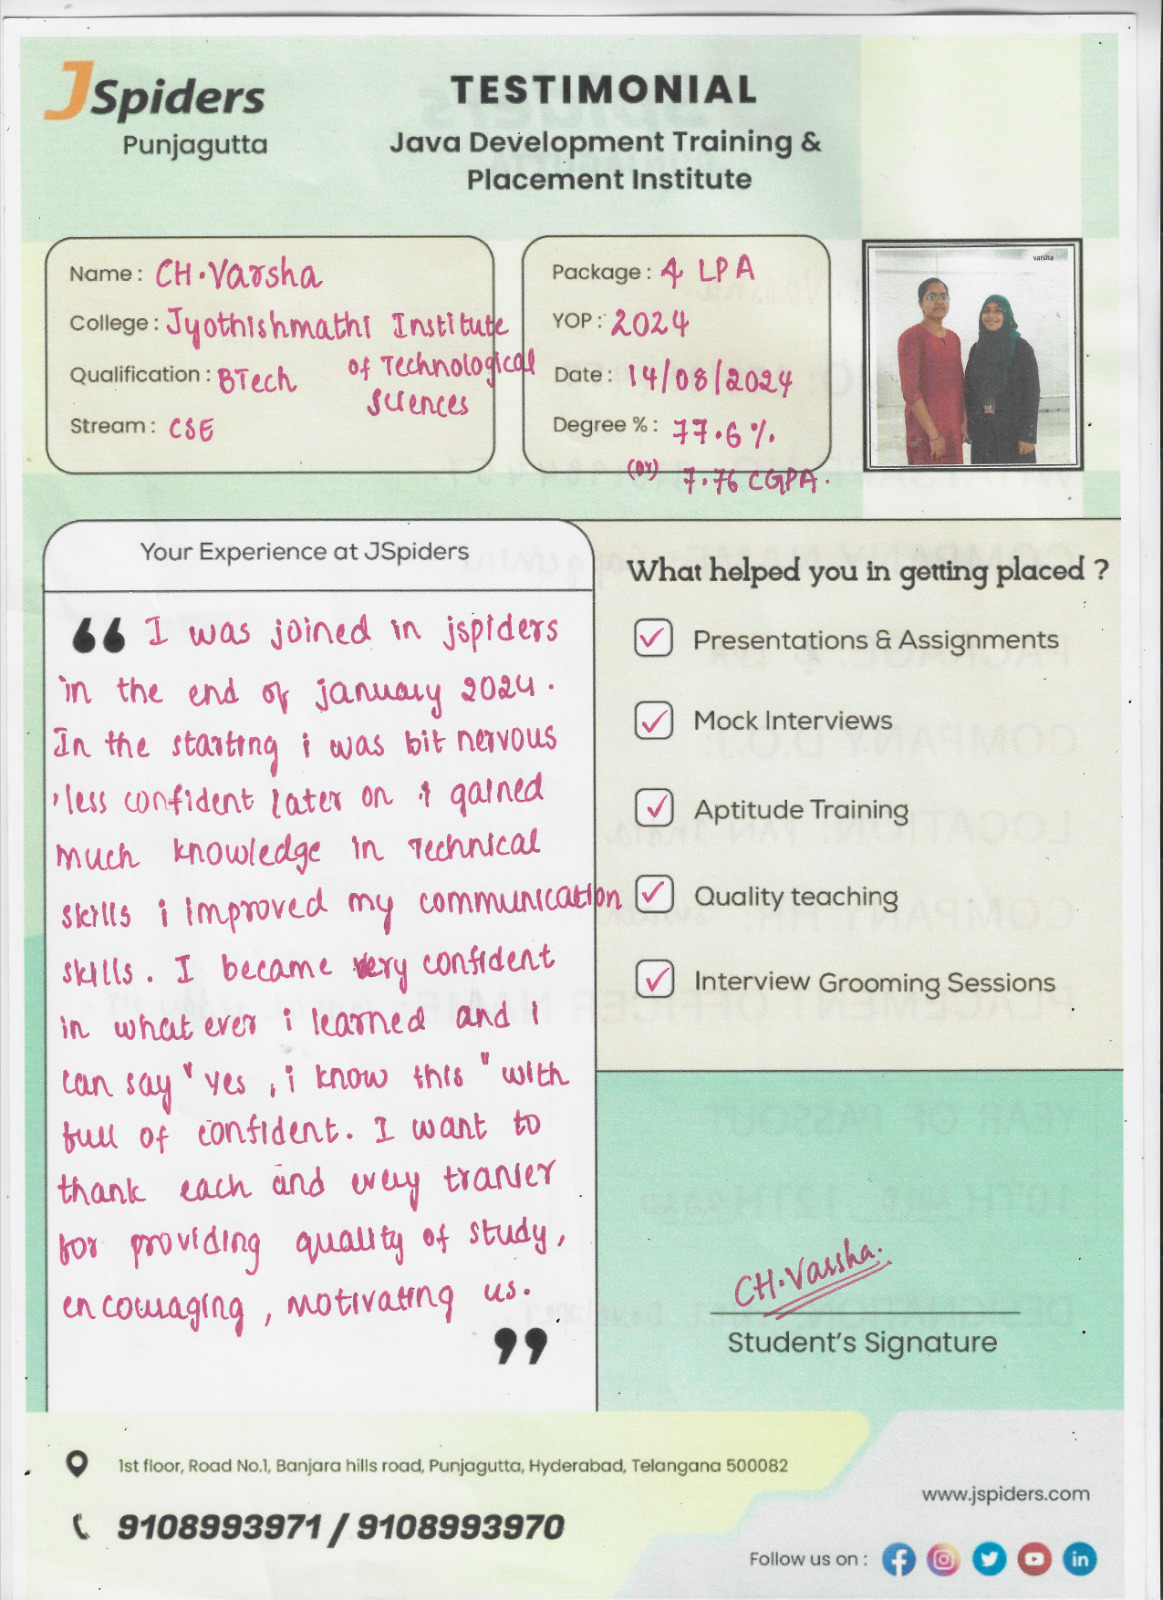 JSpiders
Punjagutta
TESTIMONIAL
Java Development Training &
Placement Institute
Name : CH.Varsha
College : Jyothishmathi Institute
of Technological
Sciences
Qualification : BTech
Stream : CSE
Package : 4 LPA
YOP : 2024
Date : 14/08/2024
Degree % : 77.6 %
(or) 7.76 CGPA.
varsha
Your Experience at JSpiders
“ I was joined in jspiders
in the end of january 2024.
In the starting i was bit nervous
, less confident later on i gained
much knowledge in Technical
skills i improved my communication
skills. I became very confident
in what ever i learned and i
can say "yes , i know this" with
full of confident. I want to
thank each and every tranier
for providing quality of study,
encouraging , motivating us.
”
What helped you in getting placed ?
✓ Presentations & Assignments
✓ Mock Interviews
✓ Aptitude Training
✓ Quality teaching
✓ Interview Grooming Sessions
CH.Varsha.
Student's Signature
1st floor, Road No.1, Banjara hills road, Punjagutta, Hyderabad, Telangana 500082
9108993971 / 9108993970
www.jspiders.com
Follow us on :